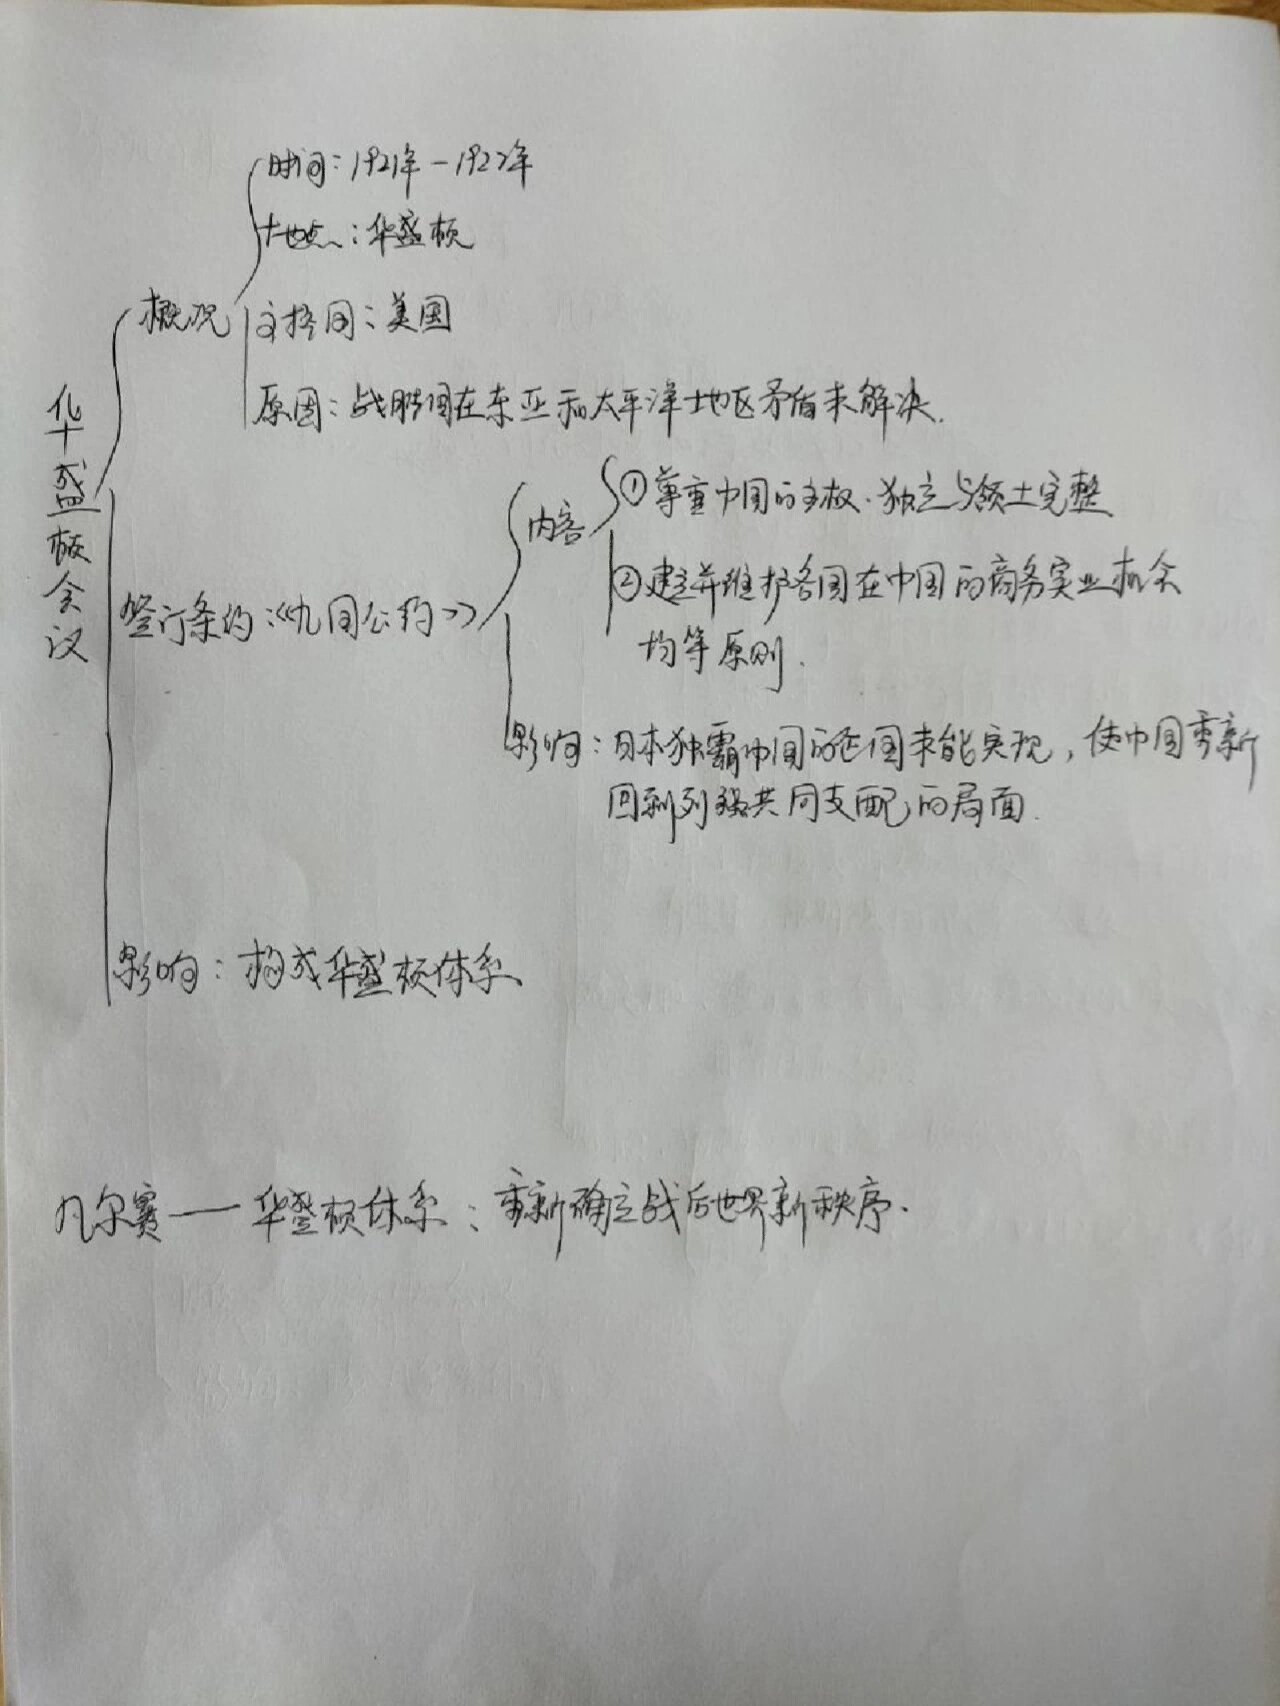 华盛顿会议
概况
时间：1921年－1922年
地点：华盛顿
主持国：美国
原因：战胜国在东亚和太平洋地区矛盾未解决.
签订条约：《九国公约》
内容
①尊重中国的主权、独立与领土完整
②建立并维护各国在中国的商务实业机会
均等原则.
影响：日本独霸中国的企图未能实现，使中国重新
回到列强共同支配的局面.
影响：构成华盛顿体系
凡尔赛——华盛顿体系：重新确立战后世界新秩序.